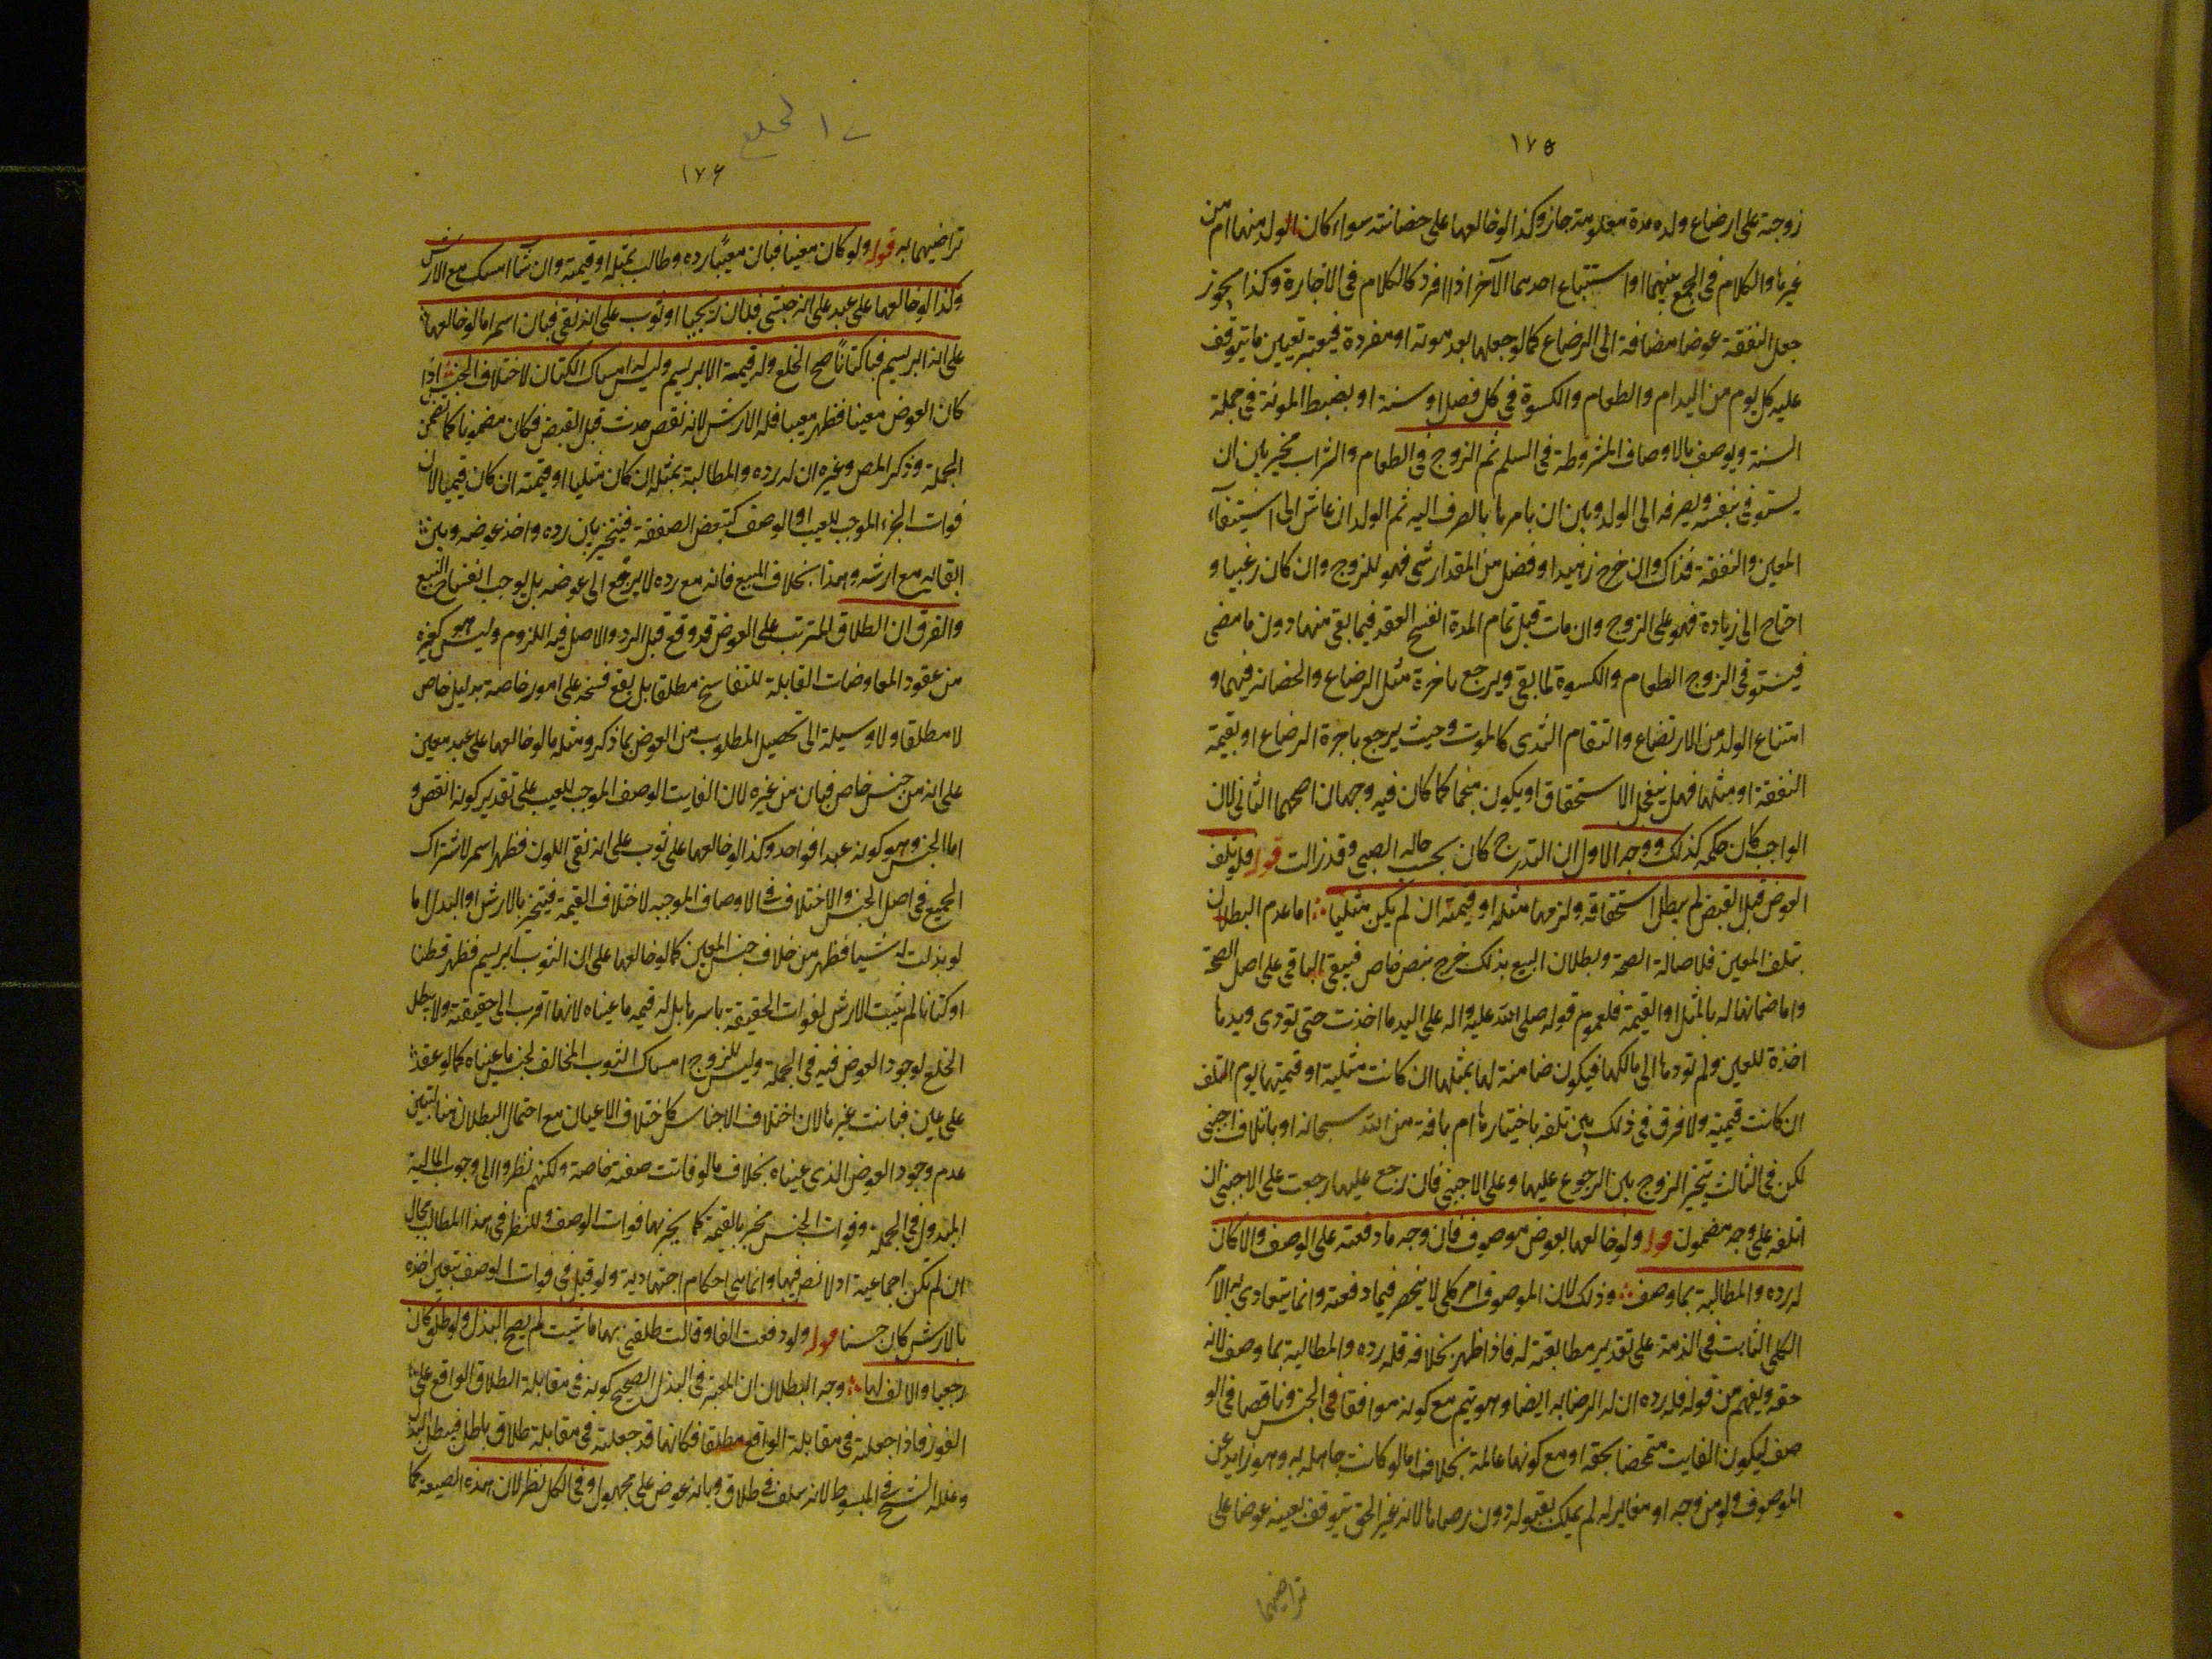 ١٧٥
زوجته على ارضاع ولده مدة معلومة جاز وكذا لو خالعها على حضانته سواء كان الولد منها ام من
غيرها والكلام فى الجمع بينهما او استتباع احدهما الآخر اذا افرد كالكلام فى الاجارة وكذا يجوز
جعل النفقة عوضا مضافة الى الرضاع كما لو جعلها بعد موته او مفردة فيعتبر تعيين ما يتوقف
عليه كل يوم من اليدام والطعام والكسوة فى كل فصل او سنة او بضبط المونة فى جملة
السنة ويوصف بالاوصاف المشروطة فى السلم ثم الزوج فى الطعام والشراب مخير بين ان
يستوفى بنفسه ويصرفه الى الولد وبين ان يامرها بالصرف اليه ثم الولد ان عاش الى استيفآء
المعين والنفقة فذاك وان خرج زهيدا وفضل من المقدار شى فهو للزوج وان كان رغيبا و
احتاج الى زيادة فهو على الزوج وان مات قبل تمام المدة انفسخ العقد فيما بقى منها دون ما مضى
فيستوفى الزوج الطعام والكسوة لما بقى ويرجع باجرة مثل الرضاع والحضانة فيهما و
امتناع الولد من الارتضاع والتقام الثدى كالموت وحيث يرجع باجرة الرضاع او بقيمة
النفقة او مثلها فهل يتعجل الاستحقاق او يكون منجما كما كان فيه وجهان اصحهما الثانى لان
الواجب كان حكمه كذلك ووجه الاول ان التدرج كان بحسب حاله الصبى وقد زالت قوله فلو تلف
العوض قبل القبض لم يبطل استحقاقه ولزمها مثله او قيمته ان لم يكن مثليا اما عدم البطلان
بتلف المعين فلاصالة الصحة وبطلان البيع بذلك خرج بنص خاص فيبقى الباقى على اصل الصحة
واما ضمانها له بالمثل او القيمة فلعموم قوله صلى الله عليه واله على اليد ما اخذت حتى تودى ويدها
اخذة للعين ولم تودها الى مالكها فيكون ضامنة لها بمثلها ان كانت مثلية او قيمتها يوم التلف
ان كانت قيمية ولا فرق فى ذلك بين تلفه باختيارها ام بافة من الله سبحانه او باتلاف اجنبى
لكن فى الثالث يتخير الزوج بين الرجوع عليها وعلى الاجنبى فان رجع عليها رجعت على الاجنبى ان
اتلفه على وجه مضمون قوله ولو خالعها بعوض موصوف فان وجد ما دفعته على الوصف والا كان
له رده والمطالبة بما وصف وذلك لان الموصوف امر كلى لا ينحصر فيما دفعته وانما يتعادى به الامر
الكلى الثابت فى الذمة على تقدير مطابقته له فاذا ظهر بخلافه فله رده والمطالبة بما وصف لانه
حقه ويفهم من قوله فله رده ان له الرضا به ايضا وهو يتم مع كونه موافقا فى الجنس وناقصا فى الو
صف ليكون الفايت متمحضا بحقه او مع كونها عالمة بخلافه اما لو كانت جاهلة به وهو زايد عن
الموصوف ولو من وجه او مغاير له لم يملك بقبوله دون رضاها لانه غير الحق يتوقف تعيينه عوضا على
تراضيهما
الخلع
١٧۶
تراضيهما به قوله ولو كان معينا فبان معيبا رده وطالب بمثله او قيمته وان شاء امسك مع الارش
وكذا لو خالعها على عبد على انه حبشى فبان زنجيا او ثوب على انه نقى فبان اسمر اما لو خالعها
على انه ابريسم فبان كتانا صح الخلع وله قيمة الابريسم وليس له امساك الكتان لاختلاف الجنس اذا
كان العوض معينا فظهر معيبا فله الارش لانه نقص حدث قبل القبض فكان مضمونا كما تضمن
الجملة وذكر المص وغيره ان له رده والمطالبة بمثله ان كان مثليا او قيمته ان كان قيميا لان
فوات الجزء الموجب للعيب او الوصف كتبعض الصفقة فيتخير بين رده واخذ عوضه وبين
ابقائه مع ارشه وهذا بخلاف المبيع فانه مع رده لا يرجع الى عوضه بل يوجب انفساخ البيع
والفرق ان الطلاق المترتب على العوض قد وقع قبل الرد والاصل فيه اللزوم وليس هو كغيره
من عقود المعاوضات القابلة للتفاسخ مطلقا بل يقع فسخه على امور خاصة بدليل خاص
لا مطلقا ولا وسيلة الى تحصيل المطلوب من العوض بما ذكر ومثله ما لو خالعها على عبد معين
على انه من جنس خاص فبان من غيره لان الفايت الوصف الموجب للعيب على تقدير كونه انقص و
اما الجنس وهو كونه عبدا فواحد وكذا لو خالعها على ثوب على انه نقى اللون فظهر اسمر لاشتراك
الجميع فى اصل الجنس والاختلاف فى الاوصاف الموجبه لاختلاف القيمة فيتخير بالارش او البدل اما
لو بذلت له شيا فظهر من خلاف جنس المعين كما لو خالعها على ان الثوب ابريسم فظهر قطنا
او كتانا لم يثبت الارش لفوات الحقيقة باسرها بل له قيمه ما عيناه لانها اقرب الى حقيقته ولا يبطل
الخلع لوجود العوض فيه فى الجملة وليس للزوج امساك الثوب المخالف لجنس ما عيناه كما لو عقد
على عين فبانت غيرها لان اختلاف الاجناس كاختلاف الاعيان مع احتمال البطلان هنا لتبين
عدم وجود العوض الذى عيناه بخلاف ما لو فاتت صفة خاصة ولكنهم نظروا الى وجوب المالية
المبذول فى الجملة وفوات الجنس ينجبر بالقيمة كما ينجبر بها فوات الوصف وللنظر فى هذا المطالب مجال
ان لم تكن اجماعية اذ لا نص فيها وانما هى احكام اجتهادية ولو قيل فى فوات الوصف بتعين اخذه
بالارش كان حسنا قوله ولو دفعت الفا وقالت طلقنى بها ما شيت لم يصح البذل ولو طلق كان
رجعيا والالف لها وجه البطلان ان المعتبر فى البذل الصحيح كونه فى مقابلة الطلاق الواقع على
الفور فاذا جعلته فى مقابلة الواقع مطلقا فكانها قد جعلته فى مقابلة طلاق باطل فيبطل البذل
وعلله الشيخ فى المبسوط لانه سلف فى طلاق وبانه عوض على مجهول وفى الكل نظر لان هذه الصيغة كما